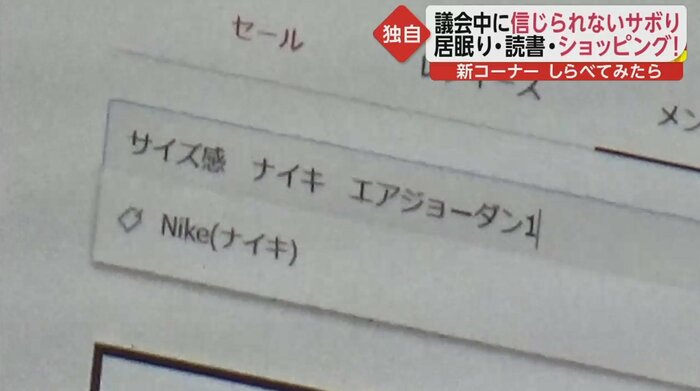 独自
議会中に信じられないサボり
居眠り・読書・ショッピング!
新コーナー しらべてみたら
セール
サイズ感 ナイキ エアジョーダン1
Nike(ナイキ)